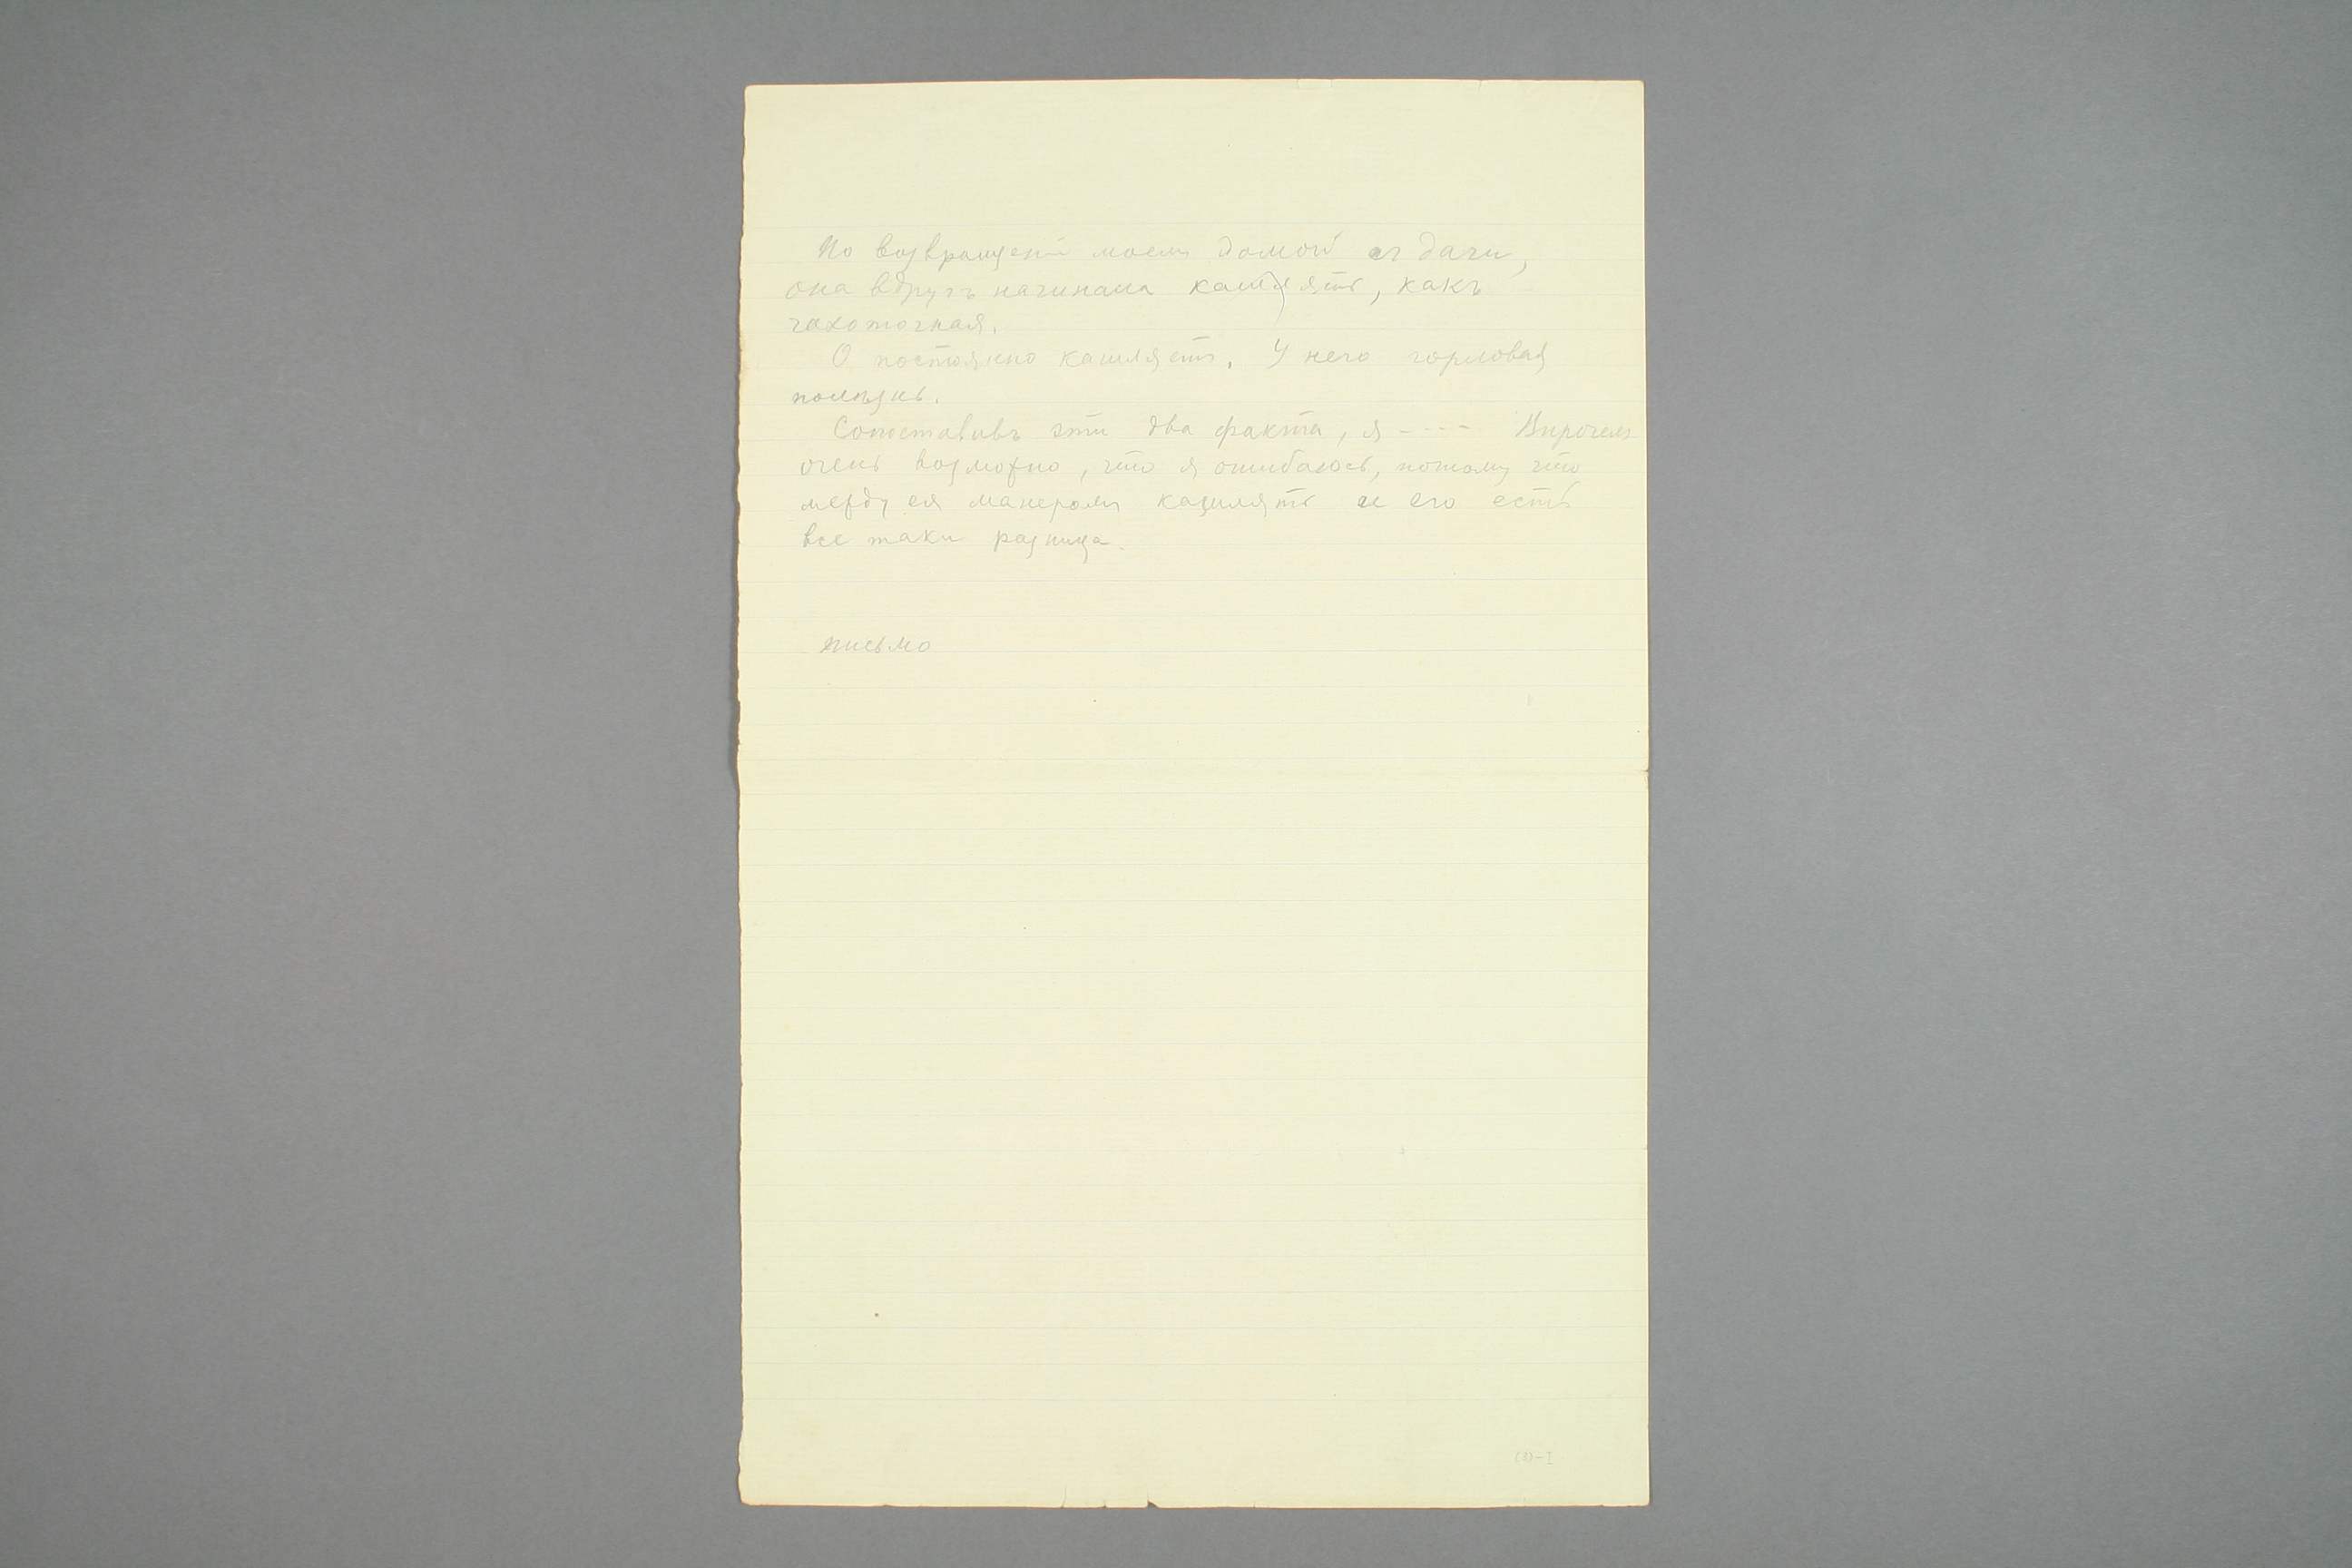 По возвращенiи моемъ домой съ дачи,
она вдругъ начинала кашлять, какъ
чахоточная.
О постоянно кашляетъ. У него горловая
Сопоставивъ эти два факта, я ---- Впрочемъ
очень возможно, что я ошибаюсь, потому что
между ея манеромъ кашлять и его есть
все таки разница.
письмо